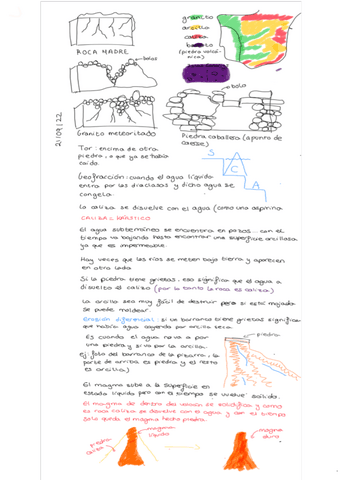 granito
arcilla
caliza
(piedra volcánica)
ROCA MADRE
bolos
bolo
Granito meteoritado
Piedra caballera (apunto de caerse)
21/09/22
Tor: encima de otra
piedra, o que ya se había
caído.
Geofracción: cuando el agua líquida
entra por las diaclasas y dicho agua se
congela.
S
C
A
La caliza se disuelve con el agua (como una aspirina
CALIZA = KÁRSTICO
El agua subterránea se encuentra en pozos... con el
tiempo va bajando hasta encontrar una superficie arcillosa
ya que es impermeable.
Hay veces que los ríos se meten bajo tierra y aparecen
en otro lado
Si la piedra tiene grietas, eso significa que el agua a
disuelto el caliza (por lo tanto la roca es caliza)
La arcilla sea muy fácil de destruir pero si está mojada
se puede moldear.
Erosión diferencial: si un barranco tiene grietas significa
que había agua cayendo por arcilla seca.
Es cuando el agua no va por
una piedra y si va por la arcilla.
ej: foto del barranco de la pizarra, la
parte de arriba es piedra y el resto
es arcilla)
piedra
El magma sube a la superficie en
estado líquido pero con el tiempo se vuelve sólido.
El magma de dentro del volcán se solidifica y como
es roca caliza se disuelve con el agua y con el tiempo
solo queda el magma hecho piedra.
piedra
caliza
magma
líquido
magma
duro